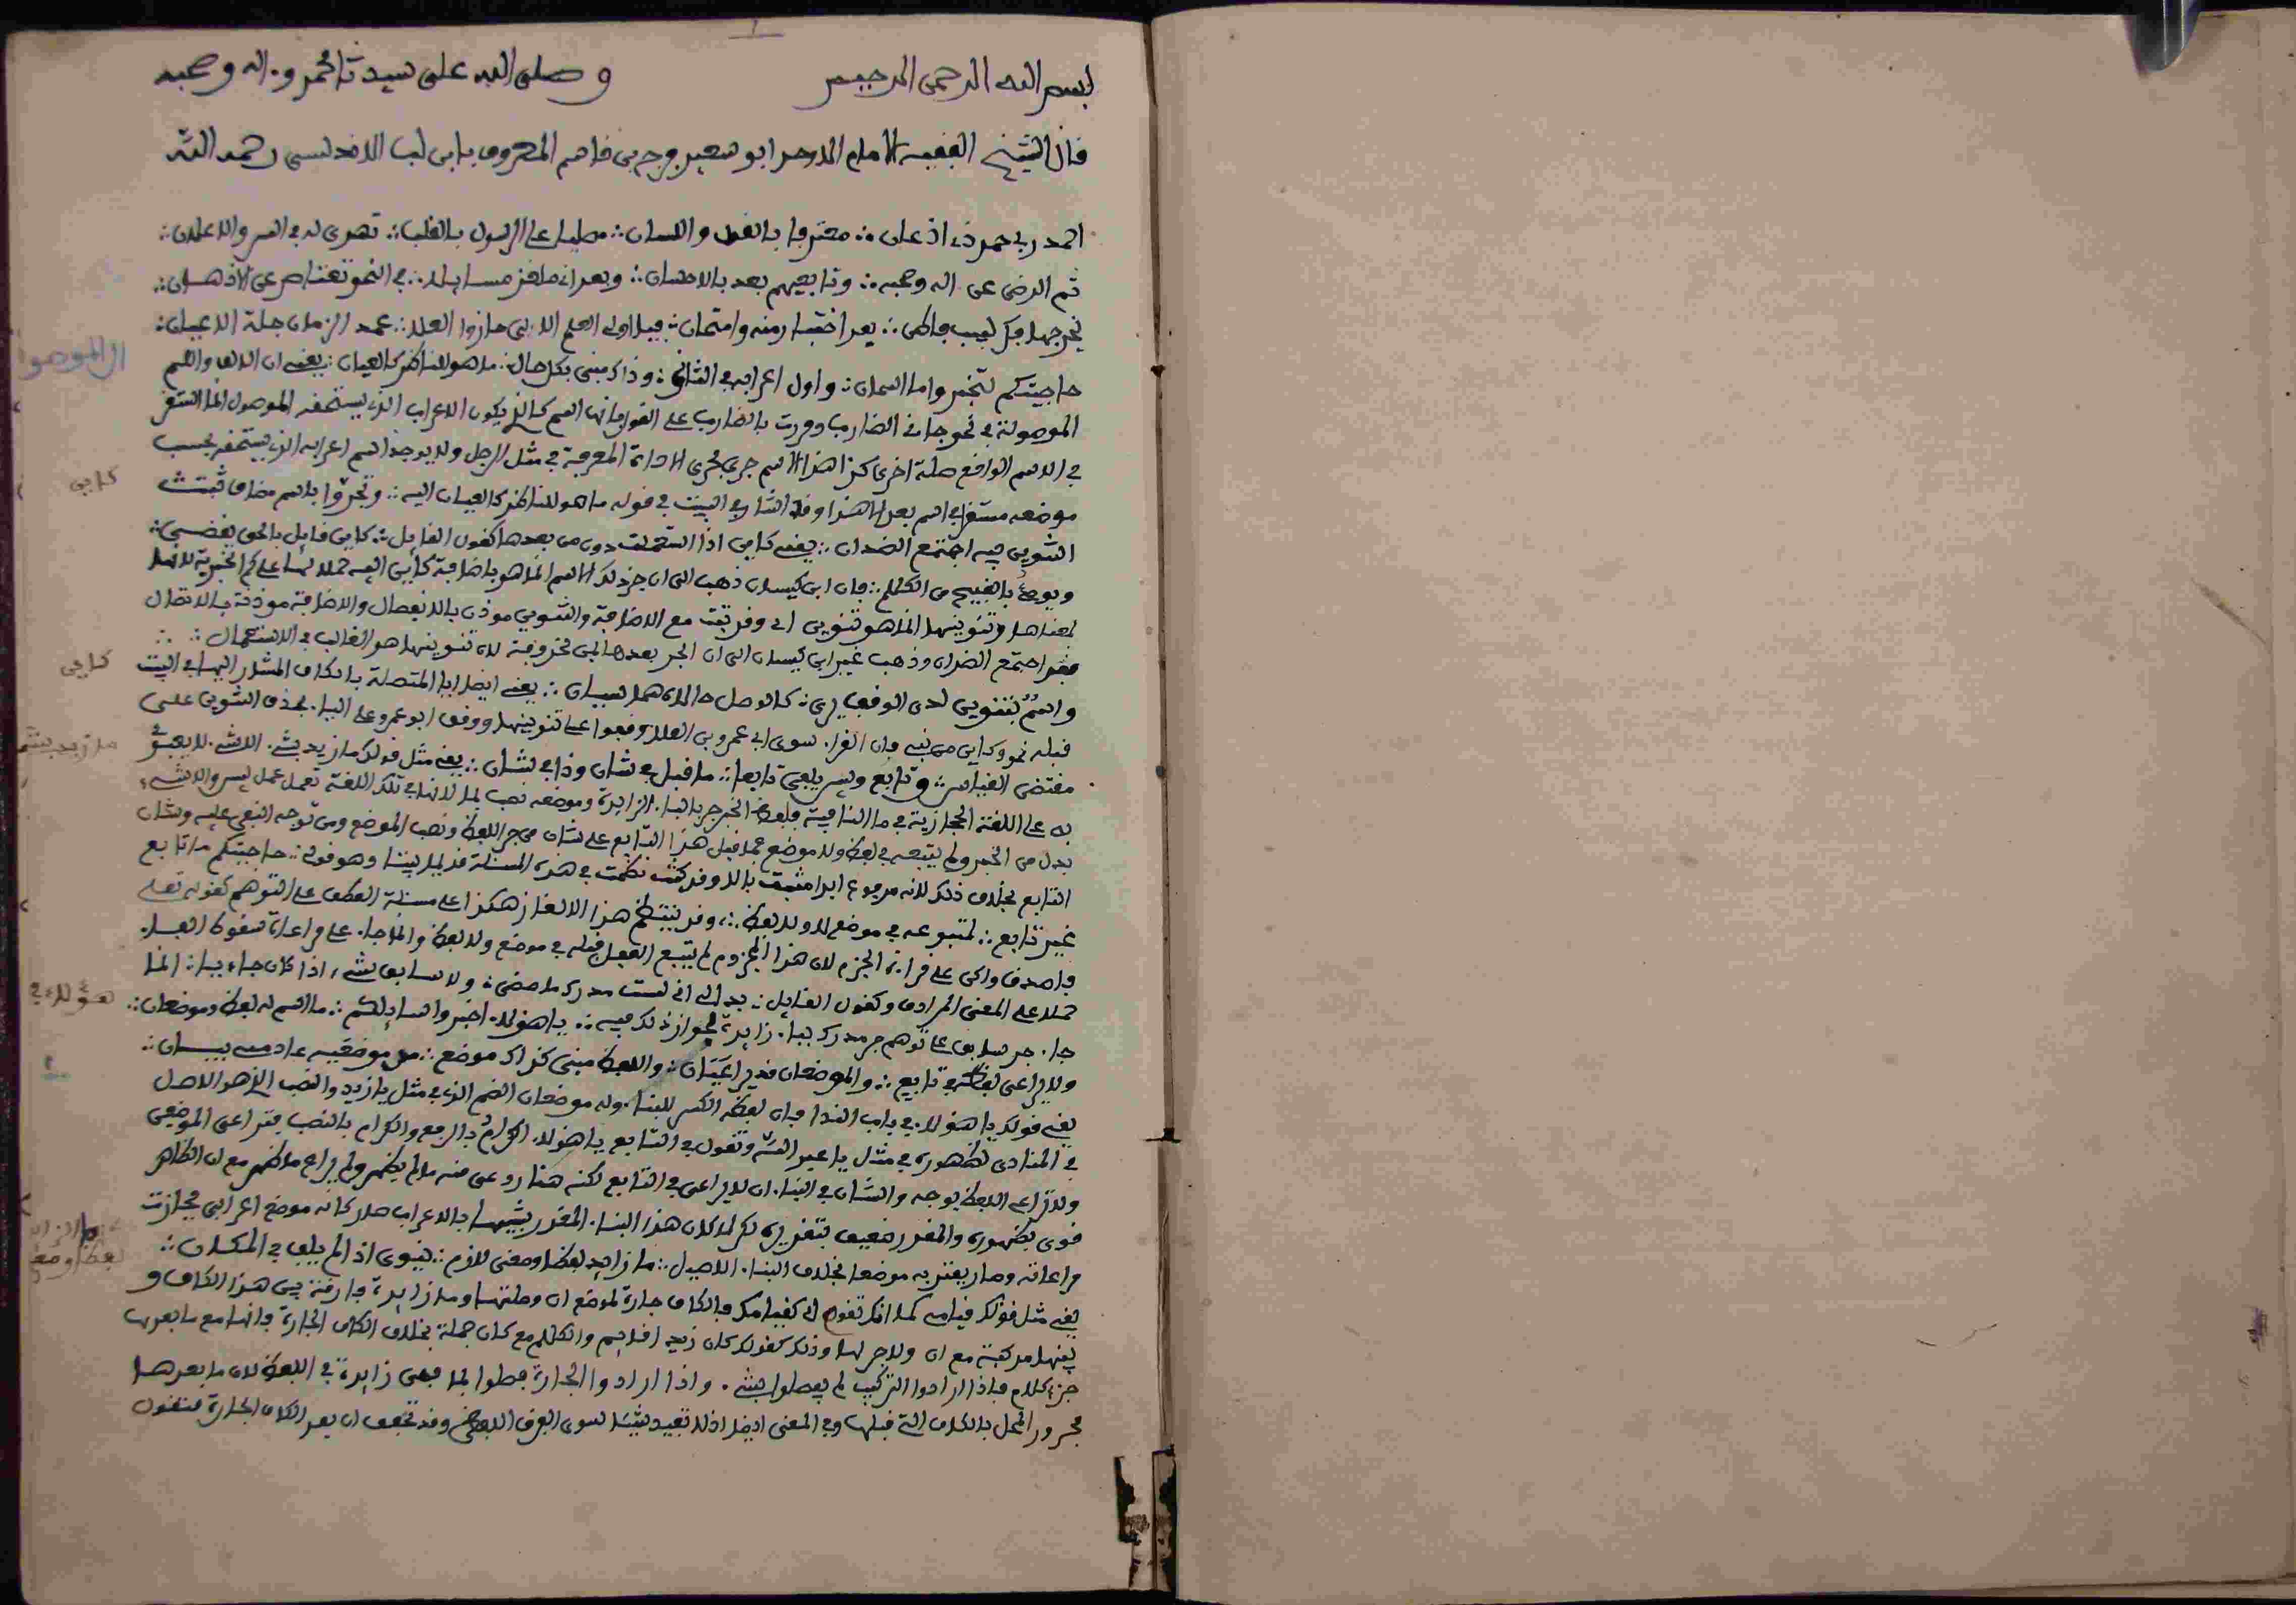 بسم الله الرحمن الرحيم وصلى الله على سيدنا محمد وءاله وصحبه
قال الشيخ الفقيه الامام الاوحد ابو سعيد فرج بن قاسم المعروف بابن لب الاندلسي رحمه الله
احمد ربي حمد ذي اذعان ∴ معترفا بالقول واللسان ∴ مصليا على الرسول بالقلب ∴ تهدى له في السر والاعلان ∴
ثم الرضى عن اله وصحبه ∴ وتابعيهم بعد بالاحسان ∴ وبعد اني ملغز مسايلا ∴ في النحو تعتاص عن الاذهان ∴
يخرجها فكر لبيب فاطن ∴ بعد اختبار منه وامتحان ∴ فيا اولي العلم الالى حازوا العلا ∴ عمد الزمان جلة الاعيان ∴
حاجيتكم لتخبروا ما اسمان ∴ واول اعرابه في الثاني ∴ وذاك مبني بكل حال ∴ ما هو للناظر كالعيان ∴ يعني ان الالف واللام
الموصولة في نحو جاني الضارب ومررت بالضارب على القول بانها اسم كالذي يكون الاعراب الذي يستحقه الموصول انما استقر
في الاسم الواقع صلة اخرى كذا هذا الاسم جرى مجرى الاداة المعرفة في مثل الرجل ولا يوجد اسم اعرابه الذي يستحقه بحسب
موضعه مستقر في اسم بعد الا هذا وقد اشار في البيت في قوله ما هو للناظر كالعيان اليه ∴ وخبروا باسم مضاف ثبتت
التنوين فيه اجتمع الضدان ∴ يعني كاين اذا استعملت دون من بعدها كقول القايل ∴ كاين قايل بالحق يقضي ∴
ويومئ بالقبيح من الكلام ∴ فان ابن كيسان ذهب الى ان جر ذلك الاسم انما هو باضافة كاين اليه حملا لها على كم الخبرية لانها
لمعناها وتنوينها انما هو تنوين اي وقد ثبت مع الاضافة والتنوين موذن بالانفصال والاضافة موذنة بالاتصال
فقد اجتمع الضدان وذهب غير ابن كيسان الى ان الجر بعدها بمن محذوفة لان تنوينها هو الغالب في الاستعمال ∴
واسم بتنوين لدى الوقف يرى ∴ كالوصل حالاه هما سيان ∴ يعني ايضا ايا المتصلة بالكاف المشار اليها في البيت
قبله نحو وكاين من نبي فان القراء سوى ابي عمرو بن العلا وقفوا على تنوينها ووقف ابو عمرو على الياء بحذف التنوين على
مقتضى القياس ∴ وتابع وليس يلفى تابعا ∴ ما قبل في شان وذا في شان ∴ يعني مثل قولك ما زيد بشيء الا شيء لا يعبؤ
به على اللغة الحجازية في ما النافية فلفظ الخبر جر بالباء الزايدة وموضعه نصب بما لانها في تلك اللغة تعمل عمل ليس والا شيء
بدل من الخبر ولم يتبعه في لفظ ولا موضع فما قبل هذا التابع على شان من جر اللفظ ونصب الموضع ومن توجه النفي عليه وشان
التابع بخلاف ذلك لانه مرفوع ابدا مثبت بالا وقد كنت نظمت في هذه المسئلة قديما بيتا وهو قولي ∴ حاجيتكم ما تابع
غير تابع ∴ لمتبوعه في موضع لا ولا لفظ ∴ وقد ينتظم هذا الالغاز هكذا على مسئلة العطف على التوهم كقوله تعلى
فاصدق واكن على قراءة الجزم لان هذا المجزوم لم يتبع الفعل قبله في موضع ولا لفظ وانما جاء على مراعاة سقوط الفاء
حملا على المعنى المرادف وكقول القايل ∴ بدا لي اني لست مدرك ما مضى ∴ ولا سابق شيء اذا كان جاءيا ∴ انما
جاء جر سابق على توهم جر مدرك بباء زايدة لجواز ذلك فيه ∴ يا هؤلاء اخبروا سايلكم ∴ ما اسم له لفظ وموضعان ∴
ولا يراعى لفظه في تابع ∴ والموضعان قد يراعيان ∴ واللفظ مبني كذاك موضع ∴ من موضعيه عادم بيان ∴
يعني قولك يا هؤلاء في باب الندا فان لفظه الكسر للبناء وله موضعان الضم الذي في مثل يا زيد والنصب الذي هو الاصل
في المنادى لظهوره في مثل يا عبد الله وتقول في التابع يا هؤلاء الكرام بالرفع والكرام بالنصب فتراعى الموضعين
ولا تراعي اللفظ بوجه والشان في البناء ان لا يراعى في التابع لكنه هنا روعي منه ما لم يظهر ولم يراع ما ظهر مع ان الظاهر
قوي بظهوره والمقدر ضعيف بتقديره لكن لما كان هذا البناء المقدر شبيها بالاعراب صار كانه موضع اعرابي فجازت
مراعاته وصار يعتد به موضعا بخلاف البناء الاصيل ∴ ما زايد لفظا ومعنى لازم ∴ ينوى اذا لم يلف في المكان ∴
يعني مثل قولك قيامي كما انك تقوم اي كقيامك فالكاف جارة لموضع ان وصلتها وما زايدة فارقة بين هذا الكاف و
بينها مركبة مع ان ولا جر لها وذلك كقولك كان زيد اقايم والكلام مع كان جملة بخلاف الكاف الجارة فانها مع ما بعدها
جزء كلام فاذا ارادوا التركيب لم يفصلوا بشيء واذا ارادوا الجارة فصلوا بما فهي زايدة في اللفظ لان ما بعدها
مجرور المحل بالكاف التي قبلها وفي المعنى ايضا اذ لا تفيد شيئا سوى الفرق اللفظي وقد تخفف ان بعد الكاف الجارة فتقول
ال الموصو
كاين
كاين
هؤلاء في